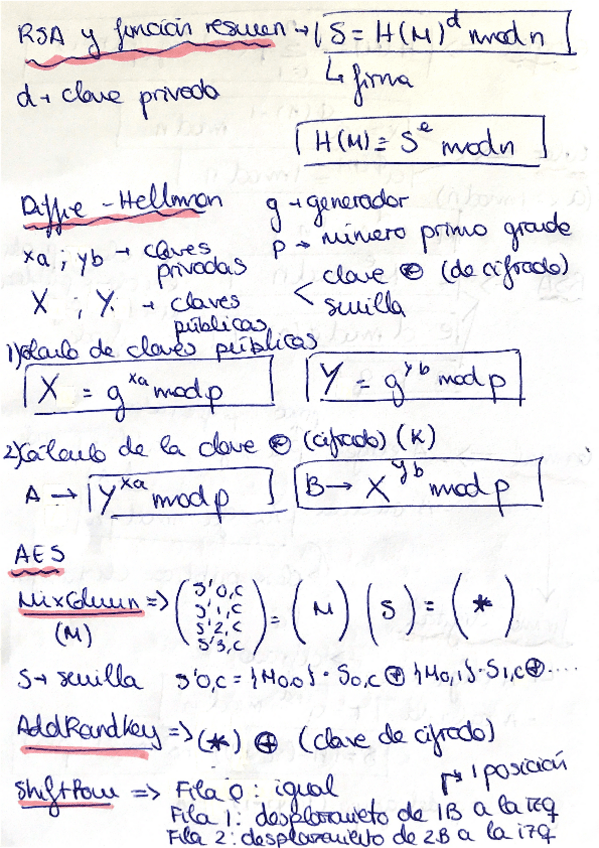 RSA y función resumen → S = H(M)^d mod n
↳ firma
d → clave privada
H(M) = S^e mod n
Diffie - Hellman
g → generador
p → número primo grande
xa ; yb → claves privadas
< clave ⊕ (de cifrado)
semilla
X ; Y. → claves públicas
1) Cálculo de claves públicas
X = g^xa mod p
Y = g^yb mod p
2) Cálculo de la clave ⊕ (cifrado) (K)
A → Y^xa mod p
B → X^yb mod p
AES
MixColumn => (S'0,c S'1,c S'2,c S'3,c) = (M) (S) = (*)
(M)
S → semilla
S'0,c = {M0,0} · S0,c ⊕ {M0,1} · S1,c ⊕ ....
AddRandKey => (*) ⊕ (clave de cifrado)
ShiftRow => Fila 0 : igual
↱ 1 posición
Fila 1 : desplazamieto de 1B a la izq
Fila 2 : desplazamiento de 2B a la izq